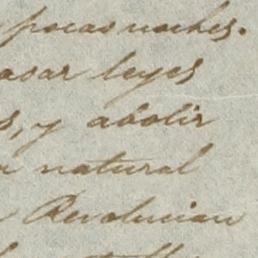 pocas noches.
asar leyes
s, y abolir
n natural
Revolucion